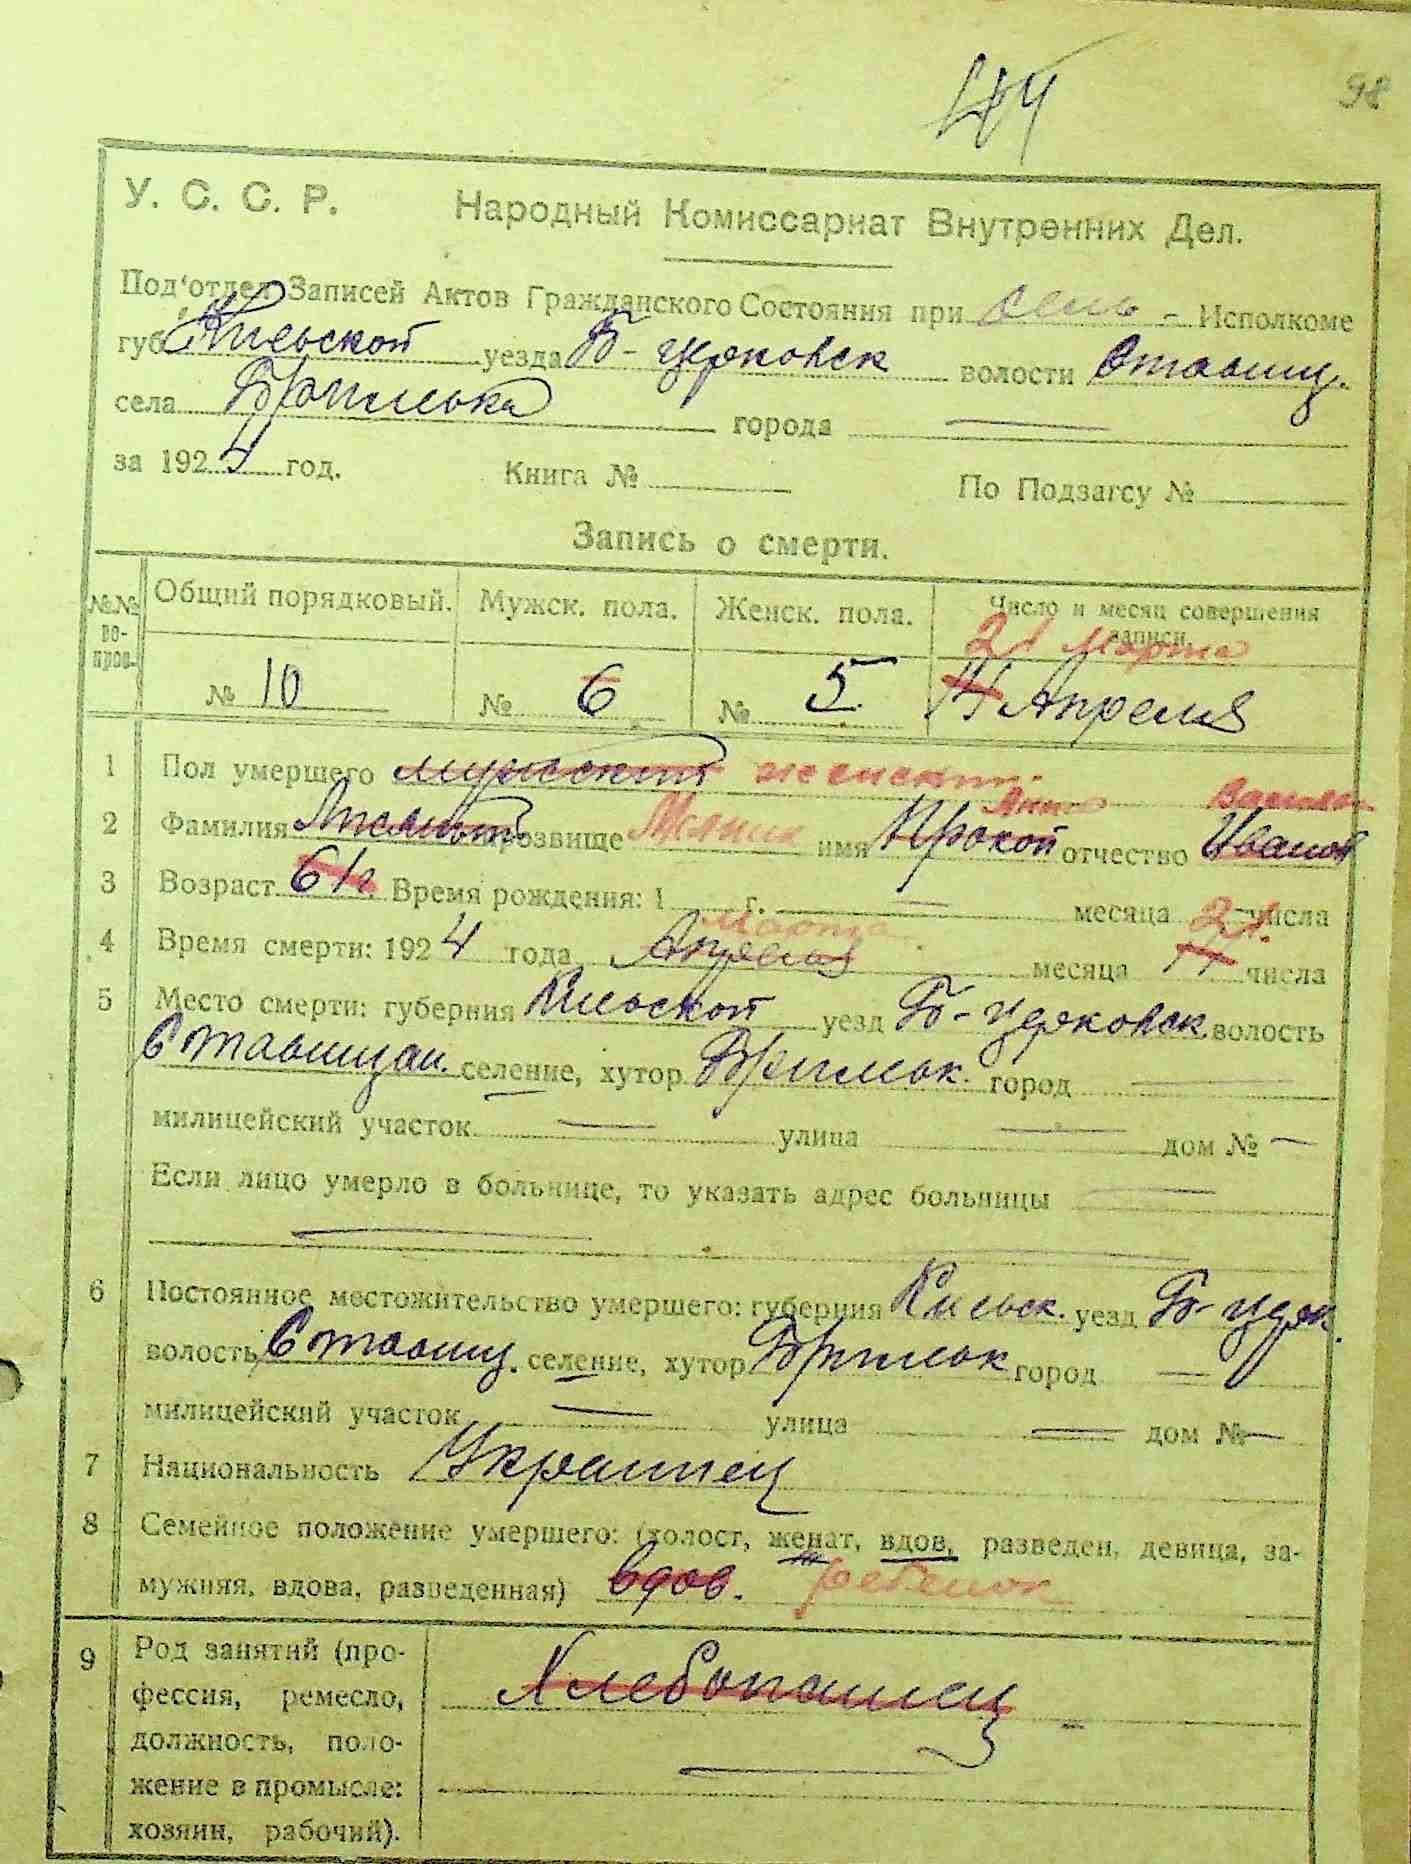 98
У. С. С. Р. Народный Комиссариат Внутренних Дел.
Под'отдел Записей Актов Гражданского Состояния при сель - Исполкоме
губ. Киевской уезда Б-церковск волости Ставищ.
села города —
за 1924 год. Книга № По Подзагсу №
Запись о смерти.
№№ во-прос. Общий порядковый. Мужск. пола. Женск. пола. Число и месяц совершения записи.
21 Марта
№ 10 № 6 № 5 14 Апреля
1 Пол умершего мужский женский.
Анна
2 Фамилия прозвище Мельник имя Прокоп отчество Иванов
3 Возраст 61 г. Время рождения: 1 г. — месяца числа
Марта 21
4 Время смерти: 1924 года Апреля месяца числа
5 Место смерти: губерния Киевской уезд Б-Церковск. волость
Ставищан. селение, хутор город —
милицейский участок — улица — дом № —
Если лицо умерло в больнице, то указать адрес больницы —
6 Постоянное местожительство умершего: губерния Киевск. уезд Б-церк.
волость Ставищ. селение, хутор город —
милицейский участок — улица — дом № —
7 Национальность Украинец
8 Семейное положение умершего: (холост, женат, вдов, разведен, девица, за-
мужняя, вдова, разведенная) вдов. ребенок
9 Род занятий (про-
фессия, ремесло, Хлебопашец
должность, поло-
жение в промысле:
хозяин, рабочий).